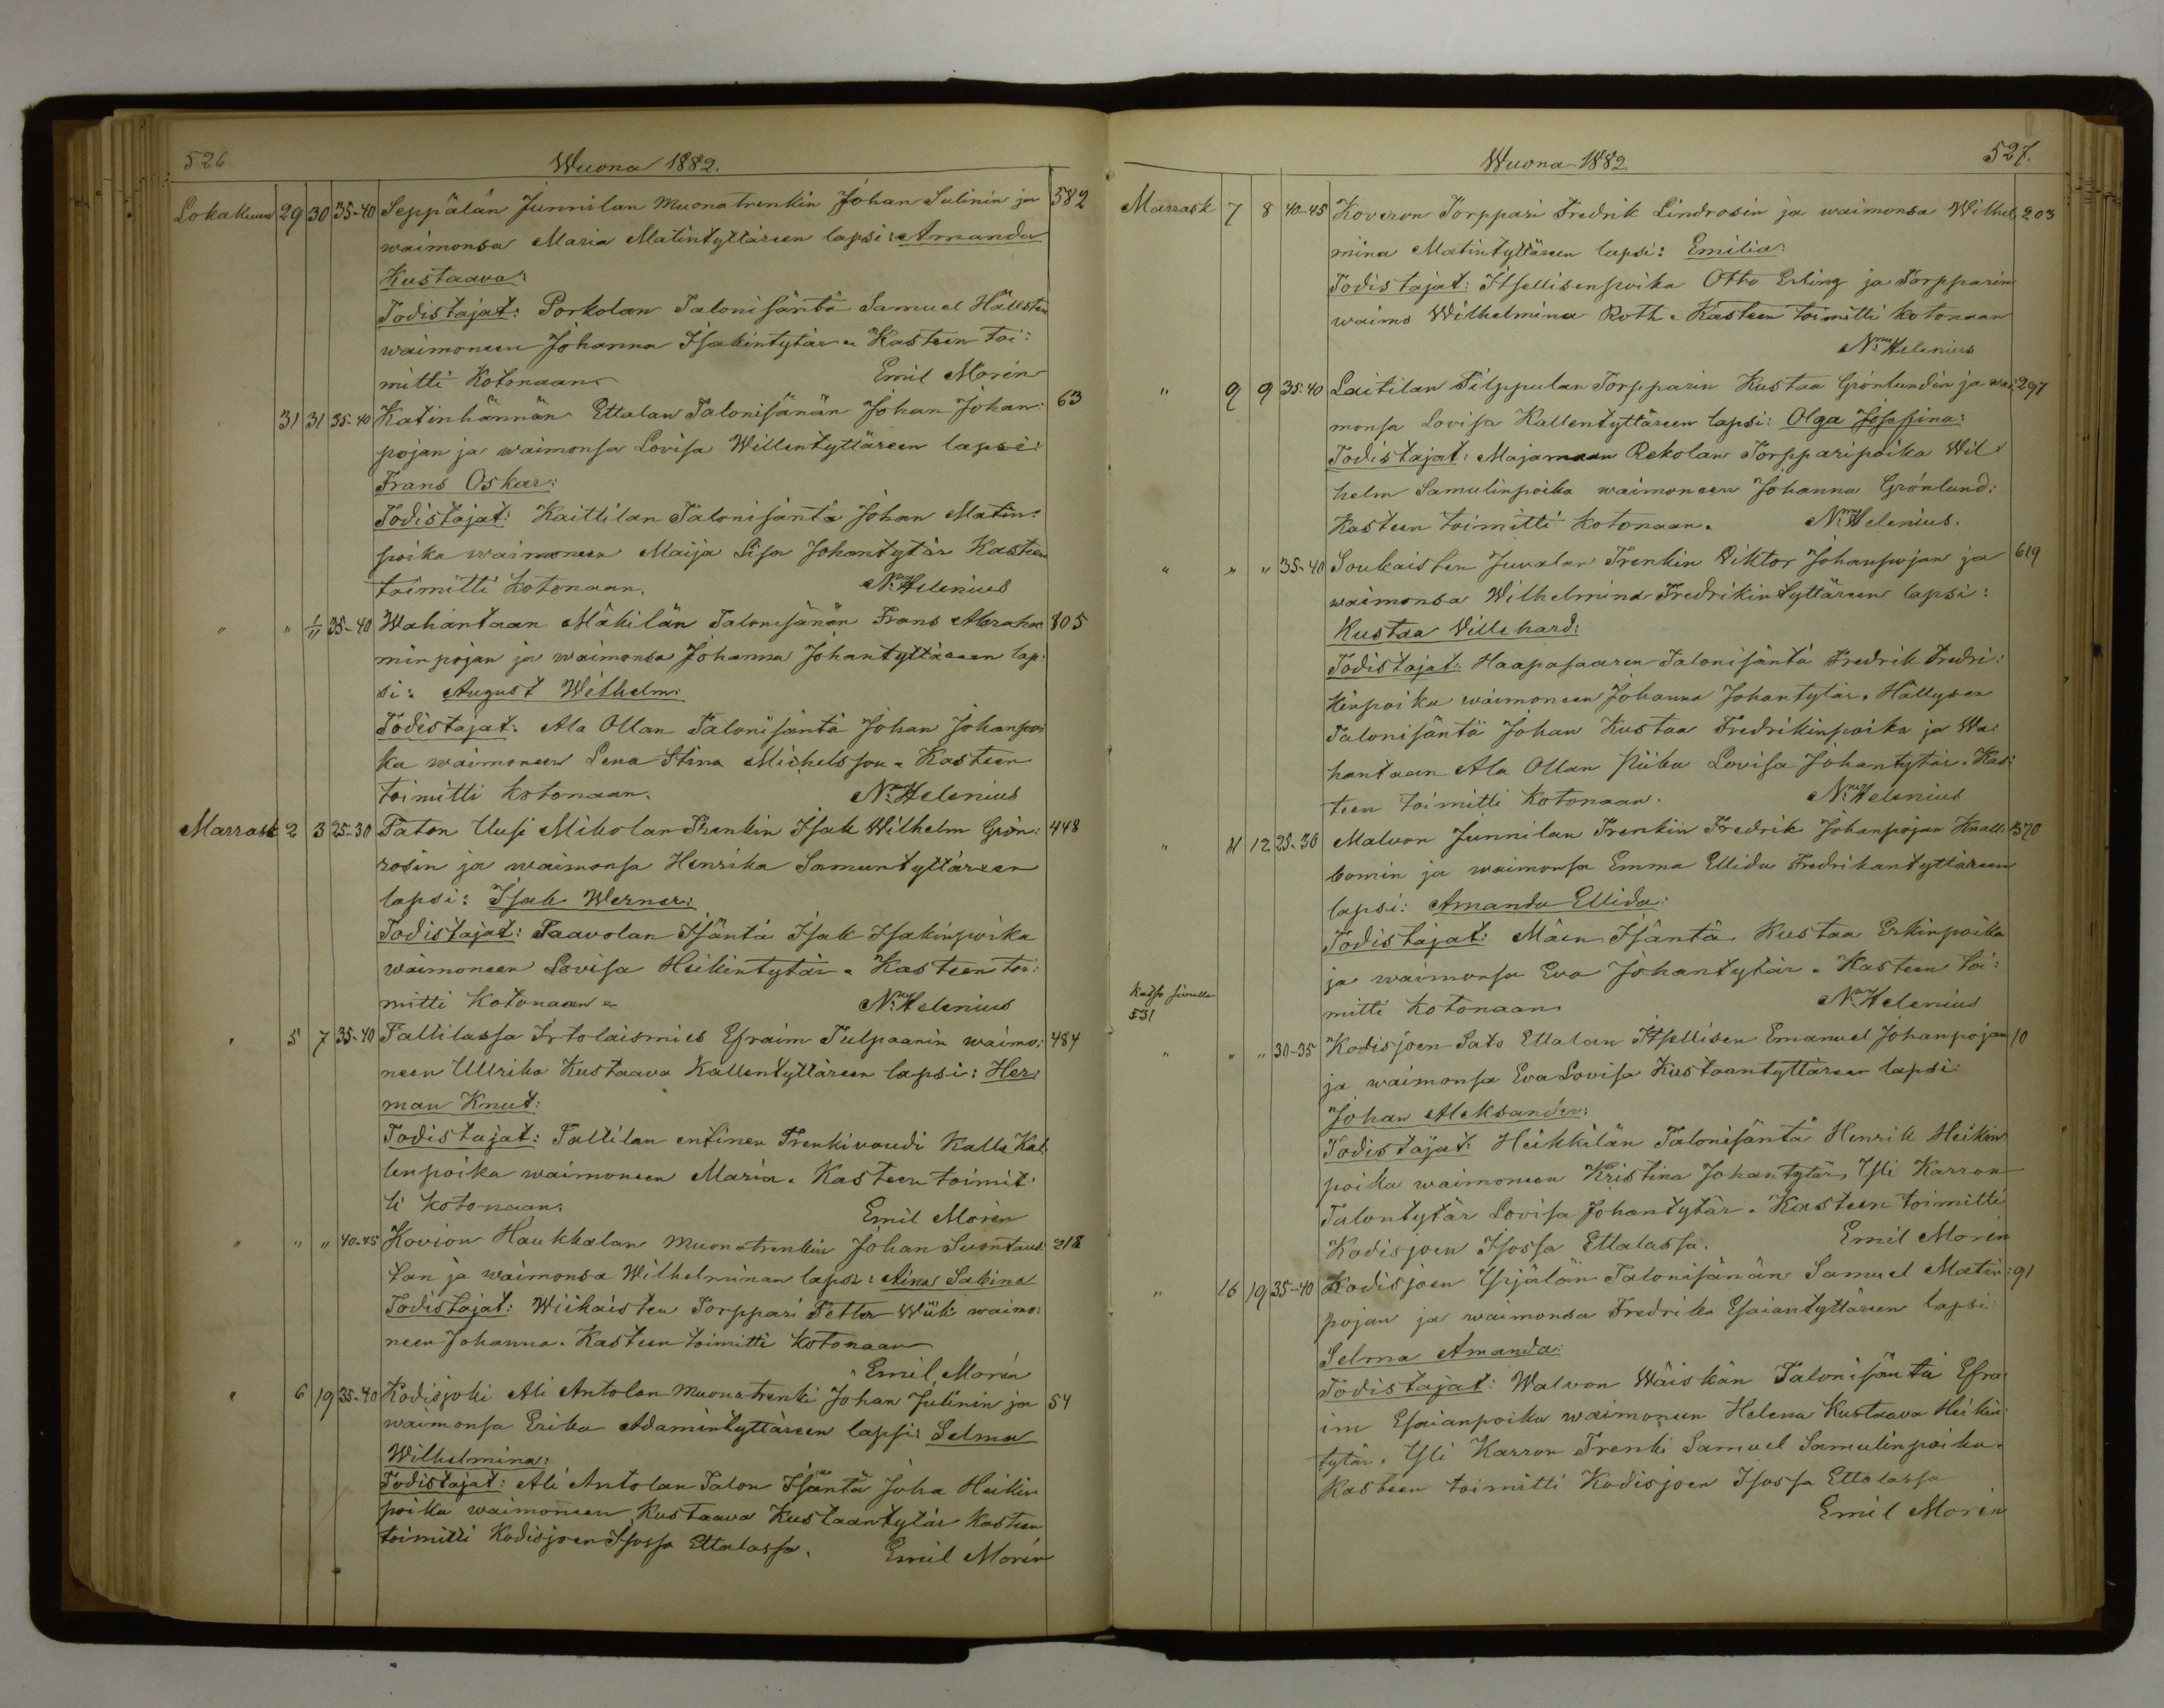 526
Wuona 1882.
Lokakuun 29 30 35-40 Seppälän Junnilan muonatrenkin Johan Sulinin ja 582
waimonsa Maria Matintyttäreen lapsi: Amanda
Kustaava:
Todistajat: Porkolan Talonisäntä Samuel Hällsten
waimoneen Johanna Isakintytär. Kasteen toi:
mitti Kotonaan Emil Morén
31 31 35-40 Katinhännän Ettalan Talonisänän Johan Johan: 63
pojan ja waimonsa Lovisa Willentyttäreen lapsi:
Frans Oskar:
Todistajat: Kaittilan Talonisäntä Johan Matin:
poika waimoneen Maija Lisa Johantytär Kasteen
toimitti kotonaan. N. Helenius
" " 1/11 35-40 Wahantaan Mäkilän Talonisänän Frans Abraha 805
minpojan ja waimonsa Johanna Johantyttäreen lap:
si: August Wilhelm:
Todistajat: Ala Ollan Talonisäntä Johan Johanpoi
ka waimoneen Lena Stina Michelsson. Kasteen
toimitti kotonaan. N. Helenius
Marrask 2 3 25-30 Taton Uusi Mikolan Trenkin Isak Wilhelm Grön: 448
rosin ja waimonsa Henrika Samuntyttäreen
lapsi: Isak Werner:
Todistajat: Taavolan Isäntä Isak Isakinpoika
waimoneen Lovisa Heikintytär. Kasteen toi:
mitti Kotonaan N. Helenius
" 5 7 35-40 Tallilassa Irtolaismies Efraim Tulpaanin waimo: 484
neen Ullrika Kustaava Kallentyttäreen lapsi: Her:
man Knut:
Todistajat: Tallilan entinen Trenkivouti Kalle Kal:
lenpoika waimoneen Maria. Kasteen toimit:
ti kotonaan. Emil Morén
" " " 40-45 Kovion Haukkalan muonatrenkin Johan Suontaus: 218
tan ja waimonsa Wilhelminan lapsi: Aina Sabina
Todistajat: Wiikaisten Torppari Petter Wiik waimo:
neen Johanna. Kasteen toimitti kotonaan
Emil Morén
" 6 19 35-40 Kodisjoki Ali Antolan muonatrenki Johan Julinin ja 54
waimonsa Erika Adamintyttäreen lapsi: Selma
Wilhelmina:
Todistajat: Ali Antolan Talon Isäntä Joha Heikin
poika waimoneen Kustaava Kustaantytär Kasteen
toimitti Kodisjoen Isossa Ettalassa. Emil Morén
527.
Wuona 1882
Marrask 7 8 40-45 Koveron Torppari Fredrik Lindrosin ja waimonsa Wilhel 203
mina Matintyttäreen lapsi: Emilia:
Todistajat: Itsellisenpoika Otto Erling ja Torpparin
waimo Wilhelmina Roth. Kasteen toimitti kotonaan
N. Helenius
" 9 9 35-40 Laitilan Filppulan Torpparin Kustaa Grönlundin ja wai 297
monsa Lovisa Kallentyttäreen lapsi: Olga Josefina:
Todistajat: Majamaan Rekolan Torpparipoika Wil
helm Samulinpoika waimoneen Johanna Grönlund:
Kasteen toimitti kotonaan. N. Helenius.
" " " 35-40 Soukaisten Juvalan Trenkin Viktor Johanpojan ja 619
waimonsa Wilhelmina Fredrikintyttäreen lapsi:
Kustaa Villehard:
Todistajat: Haapasaaren Talonisäntä Fredrik Fredri:
kinpoika waimoneen Johanna Johantytär. Hällysen
Talonisäntä Johan Kustaa Fredrikinpoika ja Wa:
hantaan Ala Ollan Piika Lovisa Johantytär. Kas:
teen toimitti kotonaan. N. Helenius
" 11 12 25-30 Malvon Junnilan Trenkin Fredrik Johanpojan Knall: 570
bomin ja waimonsa Emma Ellida Fredrikantyttäreen
lapsi: Amanda Ellida:
Todistajat: Mäen Isäntä Kustaa Erkinpoika
ja waimonsa Eva Johantytär. Kasteen toi:
mitti kotonaan N. Helenius
Katso sivulla
531
" " " 30-35 Kodisjoen Sato Ettalan Itsellisen Emanuel Johanpojan 10
ja waimonsa Eva Lovisa Kustaantyttäreen lapsi
Johan Aleksander:
Todistajat: Heikkilän Talonisäntä Henrik Heikin
poika waimoneen Kristina Johantytär, Yli Karron
Talontytär Lovisa Johantytär. Kasteen toimitti
Kodisjoen Isossa Ettalassa. Emil Morén
" 16 19 35-40 Kodisjoen Yrjälän Talonisänän Samuel Matin: 91
pojan ja waimonsa Fredrika Esaiantyttäreen lapsi
Selma Amanda:
Todistajat: Walvon Wäiskän Talonisäntä Efra
im Esaianpoika waimoneen Helena Kustaava Heikin
tytär. Yli Karron Trenki Samuel Samulinpoika.
Kasteen toimitti Kodisjoen Isossa Ettalassa
Emil Morén